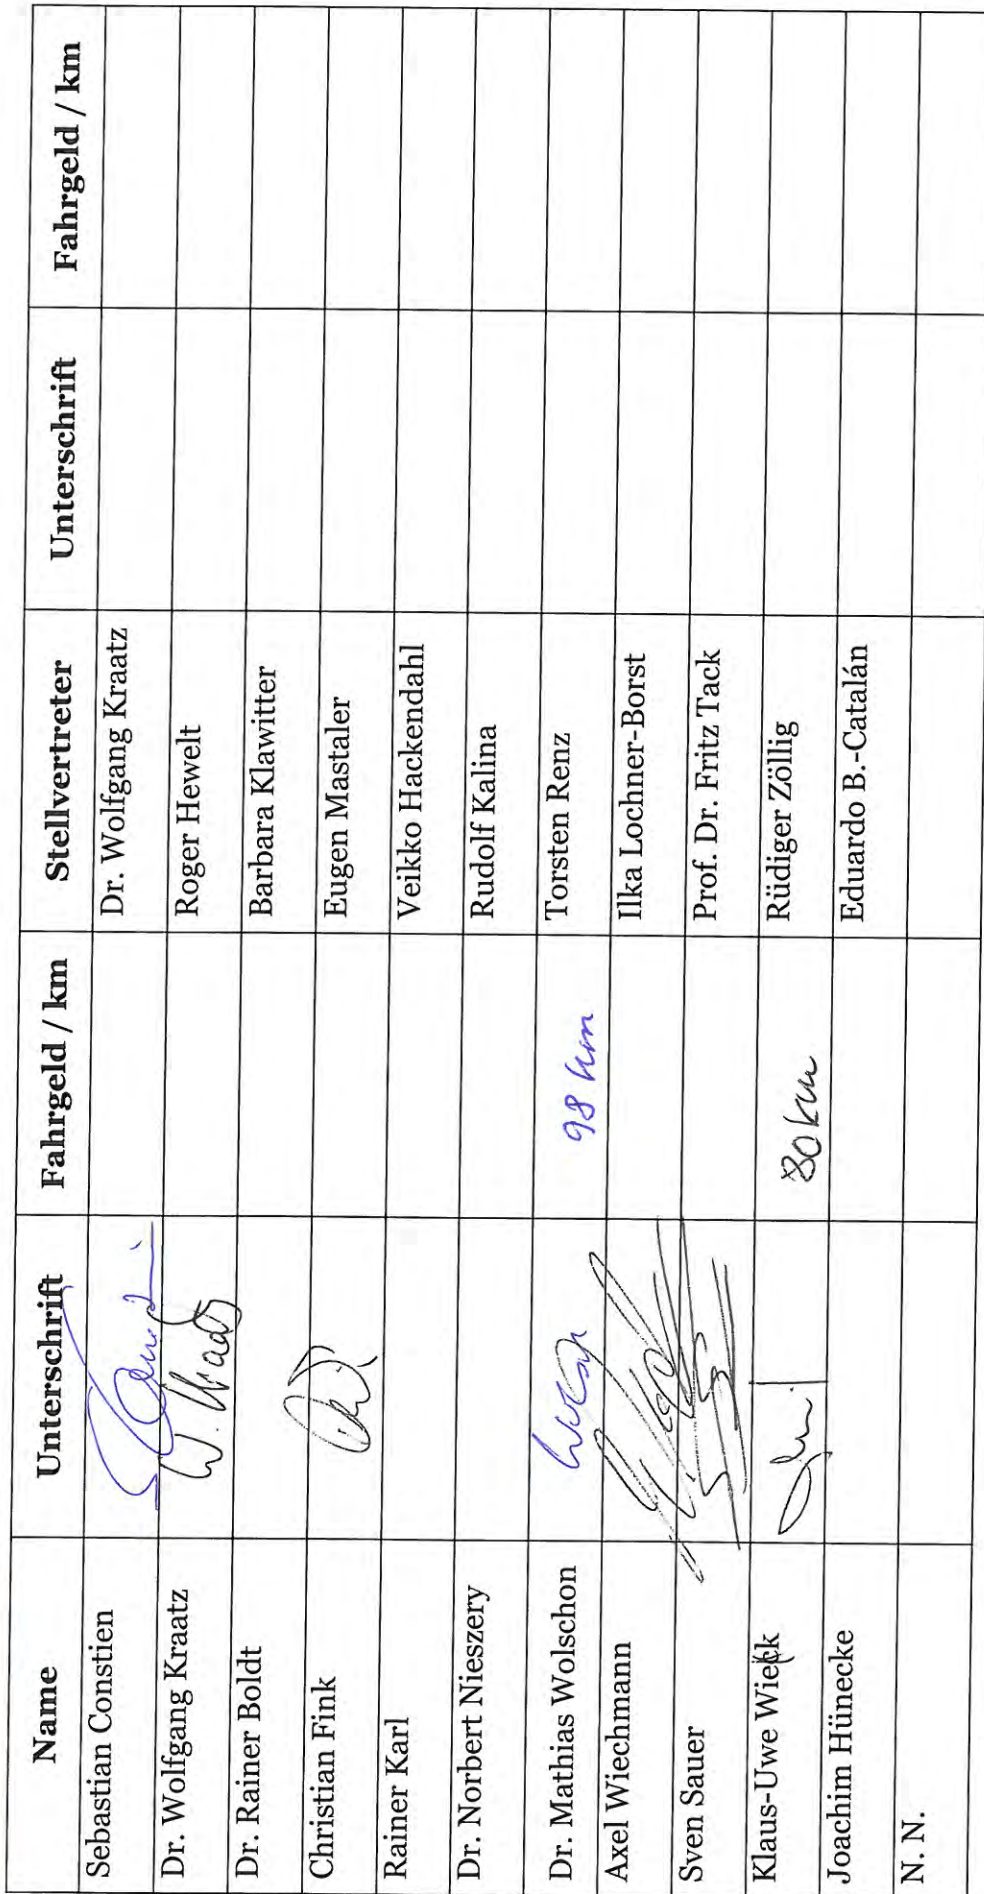 Name Unterschrift Fahrgeld / km Stellvertreter Unterschrift Fahrgeld / km
Sebastian Constien Dr. Wolfgang Kraatz
Dr. Wolfgang Kraatz W. Kraatz Roger Hewelt
Dr. Rainer Boldt Barbara Klawitter
Christian Fink Eugen Mastaler
Rainer Karl Veikko Hackendahl
Dr. Norbert Nieszery Rudolf Kalina
Dr. Mathias Wolschon 98 km Torsten Renz
Axel Wiechmann Ilka Lochner-Borst
Sven Sauer Prof. Dr. Fritz Tack
Klaus-Uwe Wieck 80 km Rüdiger Zöllig
Joachim Hünecke Eduardo B.-Catalán
N. N.